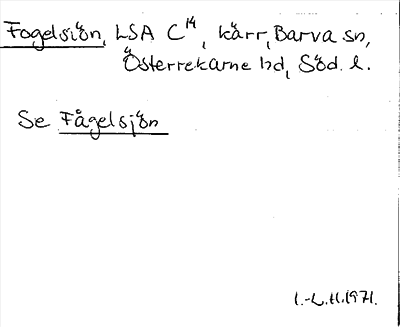 Fogelsiön, LSA C¹⁴, kärr, Barva sn,
Österrekarne hd, Söd. l.
Se Fågelsjön
I.-L.H.1971.